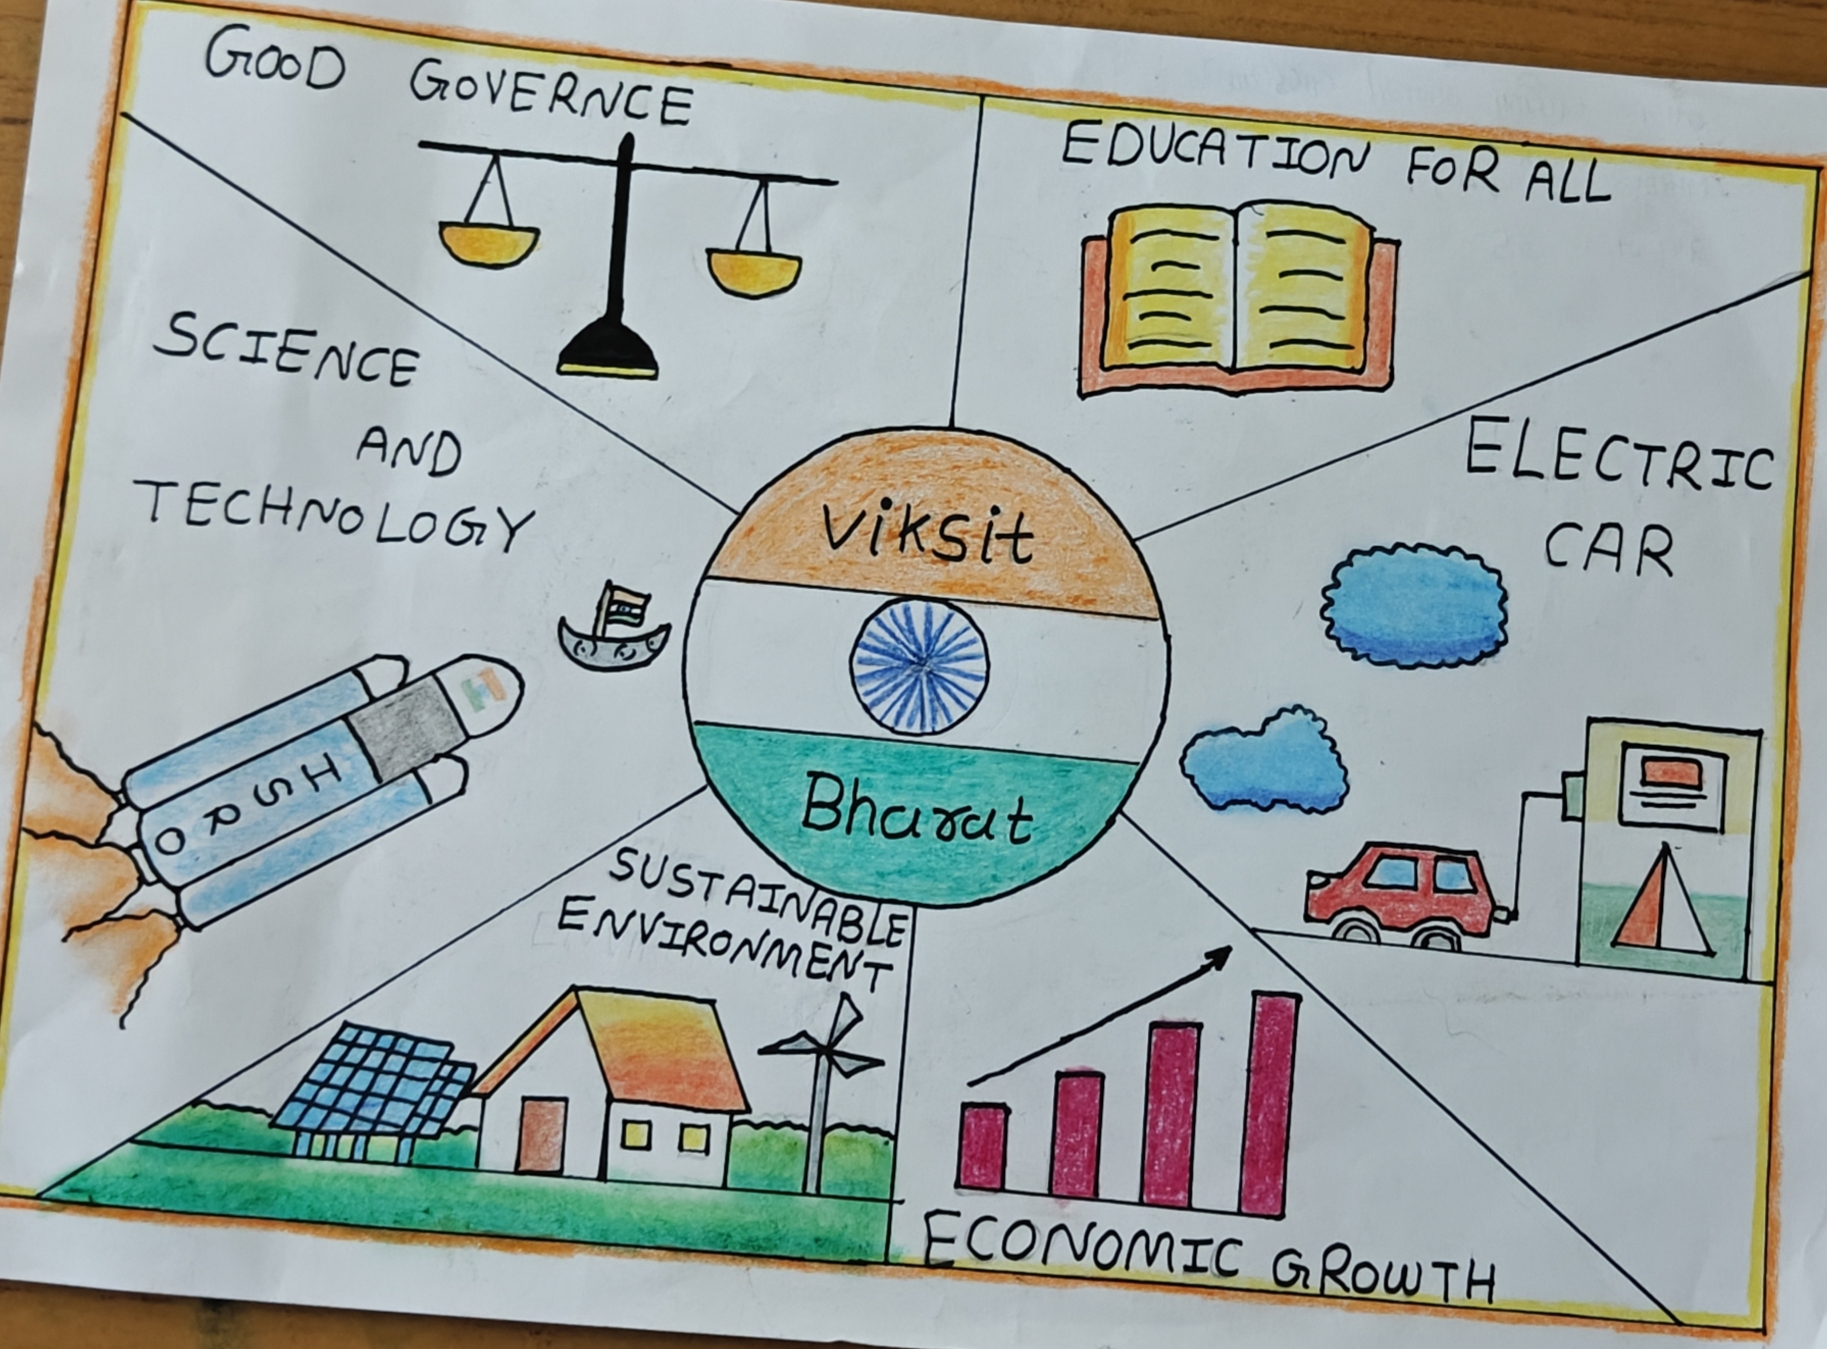 GOOD GOVERNCE
EDUCATION FOR ALL
SCIENCE
AND
TECHNOLOGY
ELECTRIC
CAR
Viksit
Bharat
ISRO
SUSTAINABLE
ENVIRONMENT
ECONOMIC GROWTH